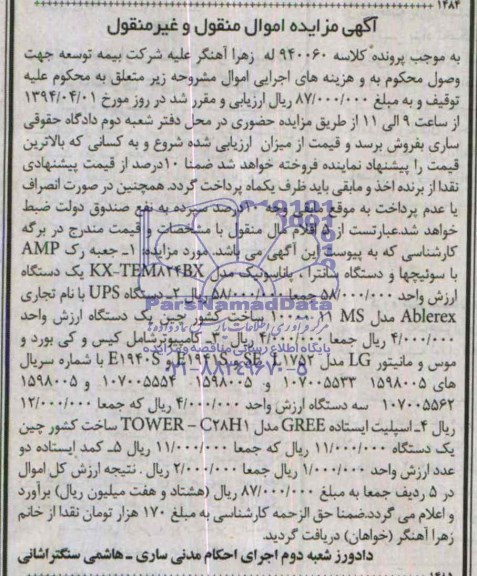 ۱۴۸۴
آگهی مزایده اموال منقول و غیرمنقول
به موجب پرونده کلاسه ۹۴۰۰۶۰ له زهرا آهنگر علیه شرکت بیمه توسعه جهت
وصول محکوم به و هزینه های اجرایی اموال مشروحه زیر متعلق به محکوم علیه
توقیف و به مبلغ ۸۷/۰۰۰/۰۰۰ ریال ارزیابی و مقرر شد در روز مورخ ۱۳۹۴/۰۴/۰۱
از ساعت ۹ الی ۱۱ از طریق مزایده حضوری در محل دفتر شعبه دوم دادگاه حقوقی
ساری بفروش برسد و قیمت از میزان ارزیابی شده شروع و به کسانی که بالاترین
قیمت را پیشنهاد نماینده فروخته خواهد شد ضمنا ۱۰درصد از قیمت پیشنهادی
نقدا از برنده اخذ و مابقی باید ظرف یکماه پرداخت گردد. همچنین در صورت انصراف
یا عدم پرداخت به موقع مابقی وجه ۱۰درصد سپرده به نفع صندوق دولت ضبط
خواهد شد.عبارتست از ۵ اقلام مال منقول با مشخصات و قیمت مندرج در برگه
کارشناسی که به پیوست این آگهی می باشد. مورد مزایده: ۱ـ جعبه رک AMP
با سوئیچها و دستگاه سانترال پاناسونیک مدل KX-TEM۸۲۴BX یک دستگاه
ارزش واحد ۵۸/۰۰۰/۰۰۰ جمعا ۵۸/۰۰۰/۰۰۰ ریال ۲ـ دستگاه UPS با نام تجاری
Ablerex مدل MS ۱۱ ۱۰۰۰ ساخت کشور چین یک دستگاه ارزش واحد
۴/۰۰۰/۰۰۰ ریال جمعا ۴/۰۰۰/۰۰۰ ریال ۳ـ کامپیوترشامل کیس و کی بورد و
موس و مانیتور LG مدل ۱۷۵۲ SE، L و E۱۹۴۱S و E۱۹۴۰S با شماره سریال
های ۱۵۹۸۰۰۵ ۱۰۷۰۰۵۵۳۳ و ۱۵۹۸۰۰۵ ۱۰۷۰۰۵۵۵۴ و ۱۵۹۸۰۰۵
۱۰۷۰۰۵۵۶۲ سه دستگاه ارزش واحد ۴/۰۰۰/۰۰۰ ریال که جمعا ۱۲/۰۰۰/۰۰۰
ریال ۴ـ اسپلیت ایستاده GREE مدل TOWER – C۲۸H۱ ساخت کشور چین
یک دستگاه ۱۱/۰۰۰/۰۰۰ ریال که جمعا ۱۱/۰۰۰/۰۰۰ ریال ۵ـ کمد ایستاده دو
عدد ارزش واحد ۱/۰۰۰/۰۰۰ ریال جمعا ۲/۰۰۰/۰۰۰ ریال . نتیجه ارزش کل اموال
در ۵ ردیف جمعا به مبلغ ۸۷/۰۰۰/۰۰۰ ریال (هشتاد و هفت میلیون ریال) برآورد
و اعلام می گردد.ضمنا حق الزحمه کارشناسی به مبلغ ۱۷۰ هزار تومان نقدا از خانم
زهرا آهنگر (خواهان) دریافت گردید.
دادورز شعبه دوم اجرای احکام مدنی ساری ـ هاشمی سنگتراشانی
ParsNamadData
پایگاه اطلاع رسانی مناقصه و مزایده
۰۲۱-۸۸۳۴۹۶۷۰-۵